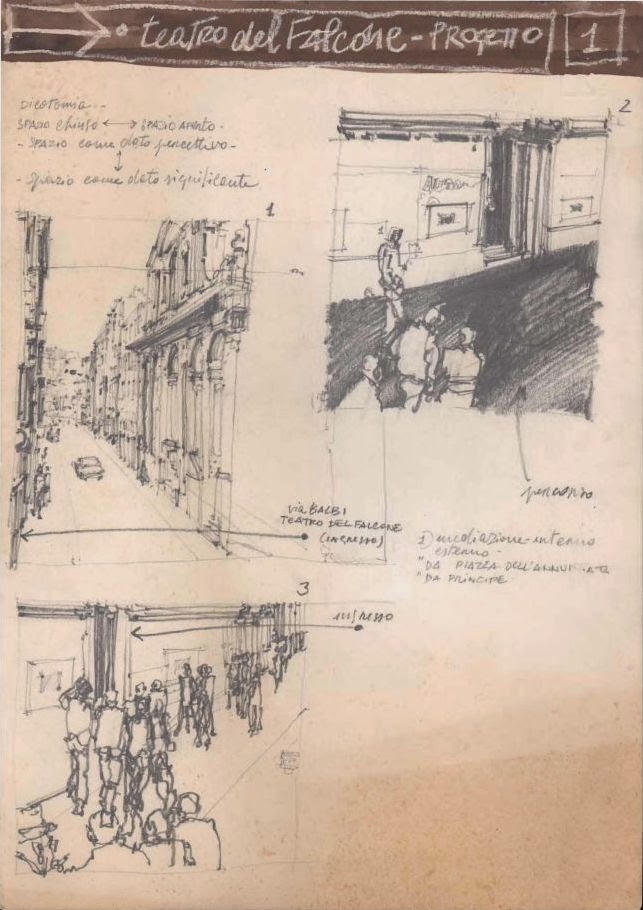 teatro del Falcone - PROGETTO 1
Dicotomia -
SPAZIO chiuso ↔ SPAZIO APERTO -
- SPAZIO come dato percettivo -
↕
- Spazio come dato significante
1
2
percorso
via BALBI
TEATRO DEL FALCONE
(ingresso)
1) mediazione interno
esterno -
"DA PIAZZA DELL'ANNUNZIATA
"DA PRINCIPE
3
ingresso